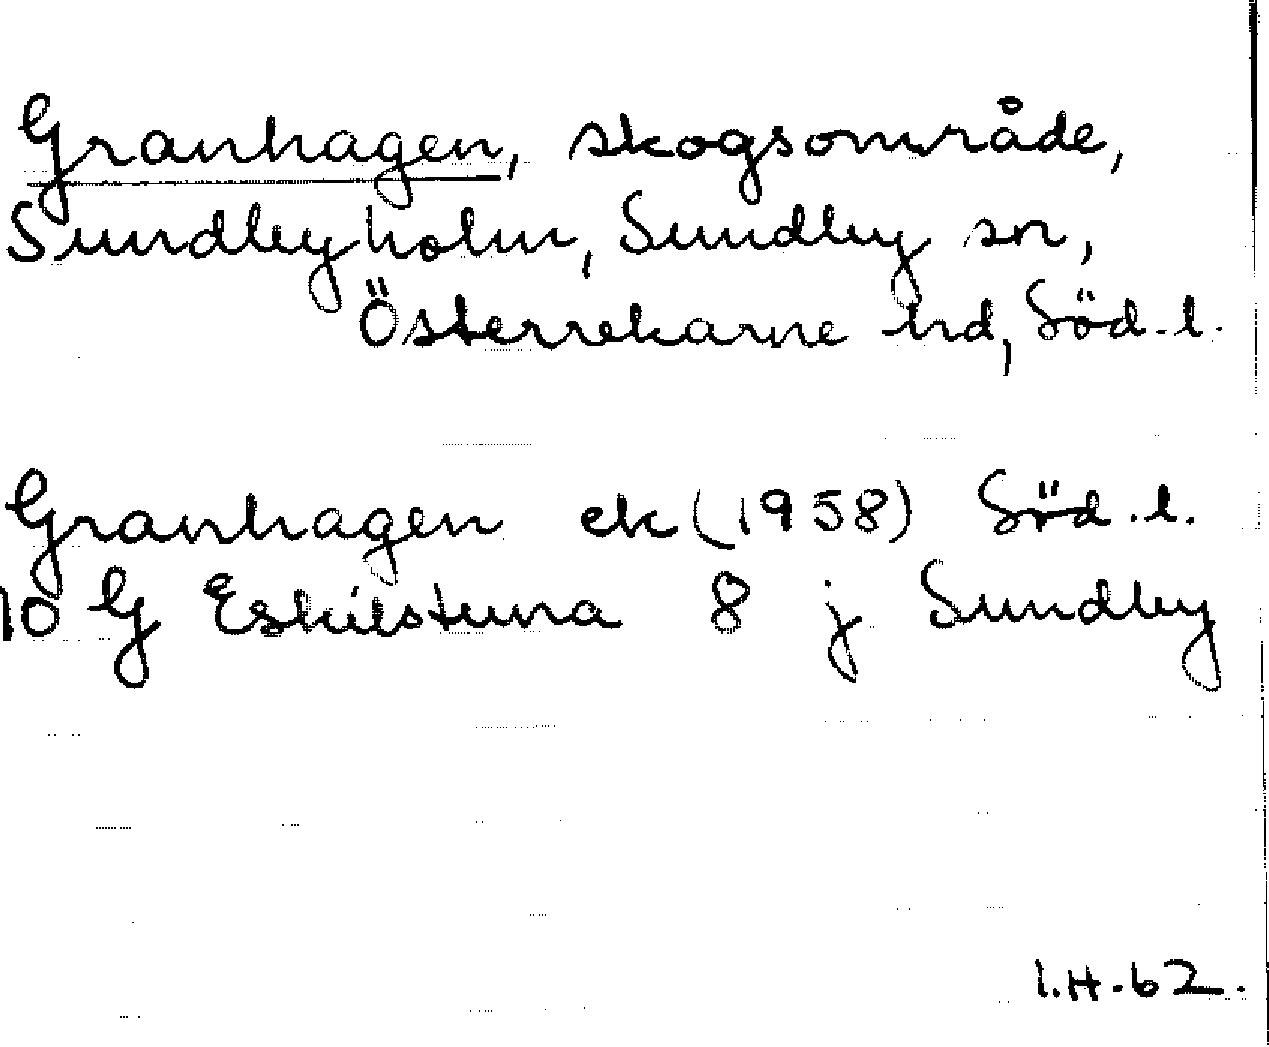 Granhagen, skogsområde,
Sundbyholm, Sundby sn,
Österrekarne hd, Söd.l.
Granhagen ek (1958) Söd.l.
10 G Eskilstuna 8 j Sundby
I.H.62.